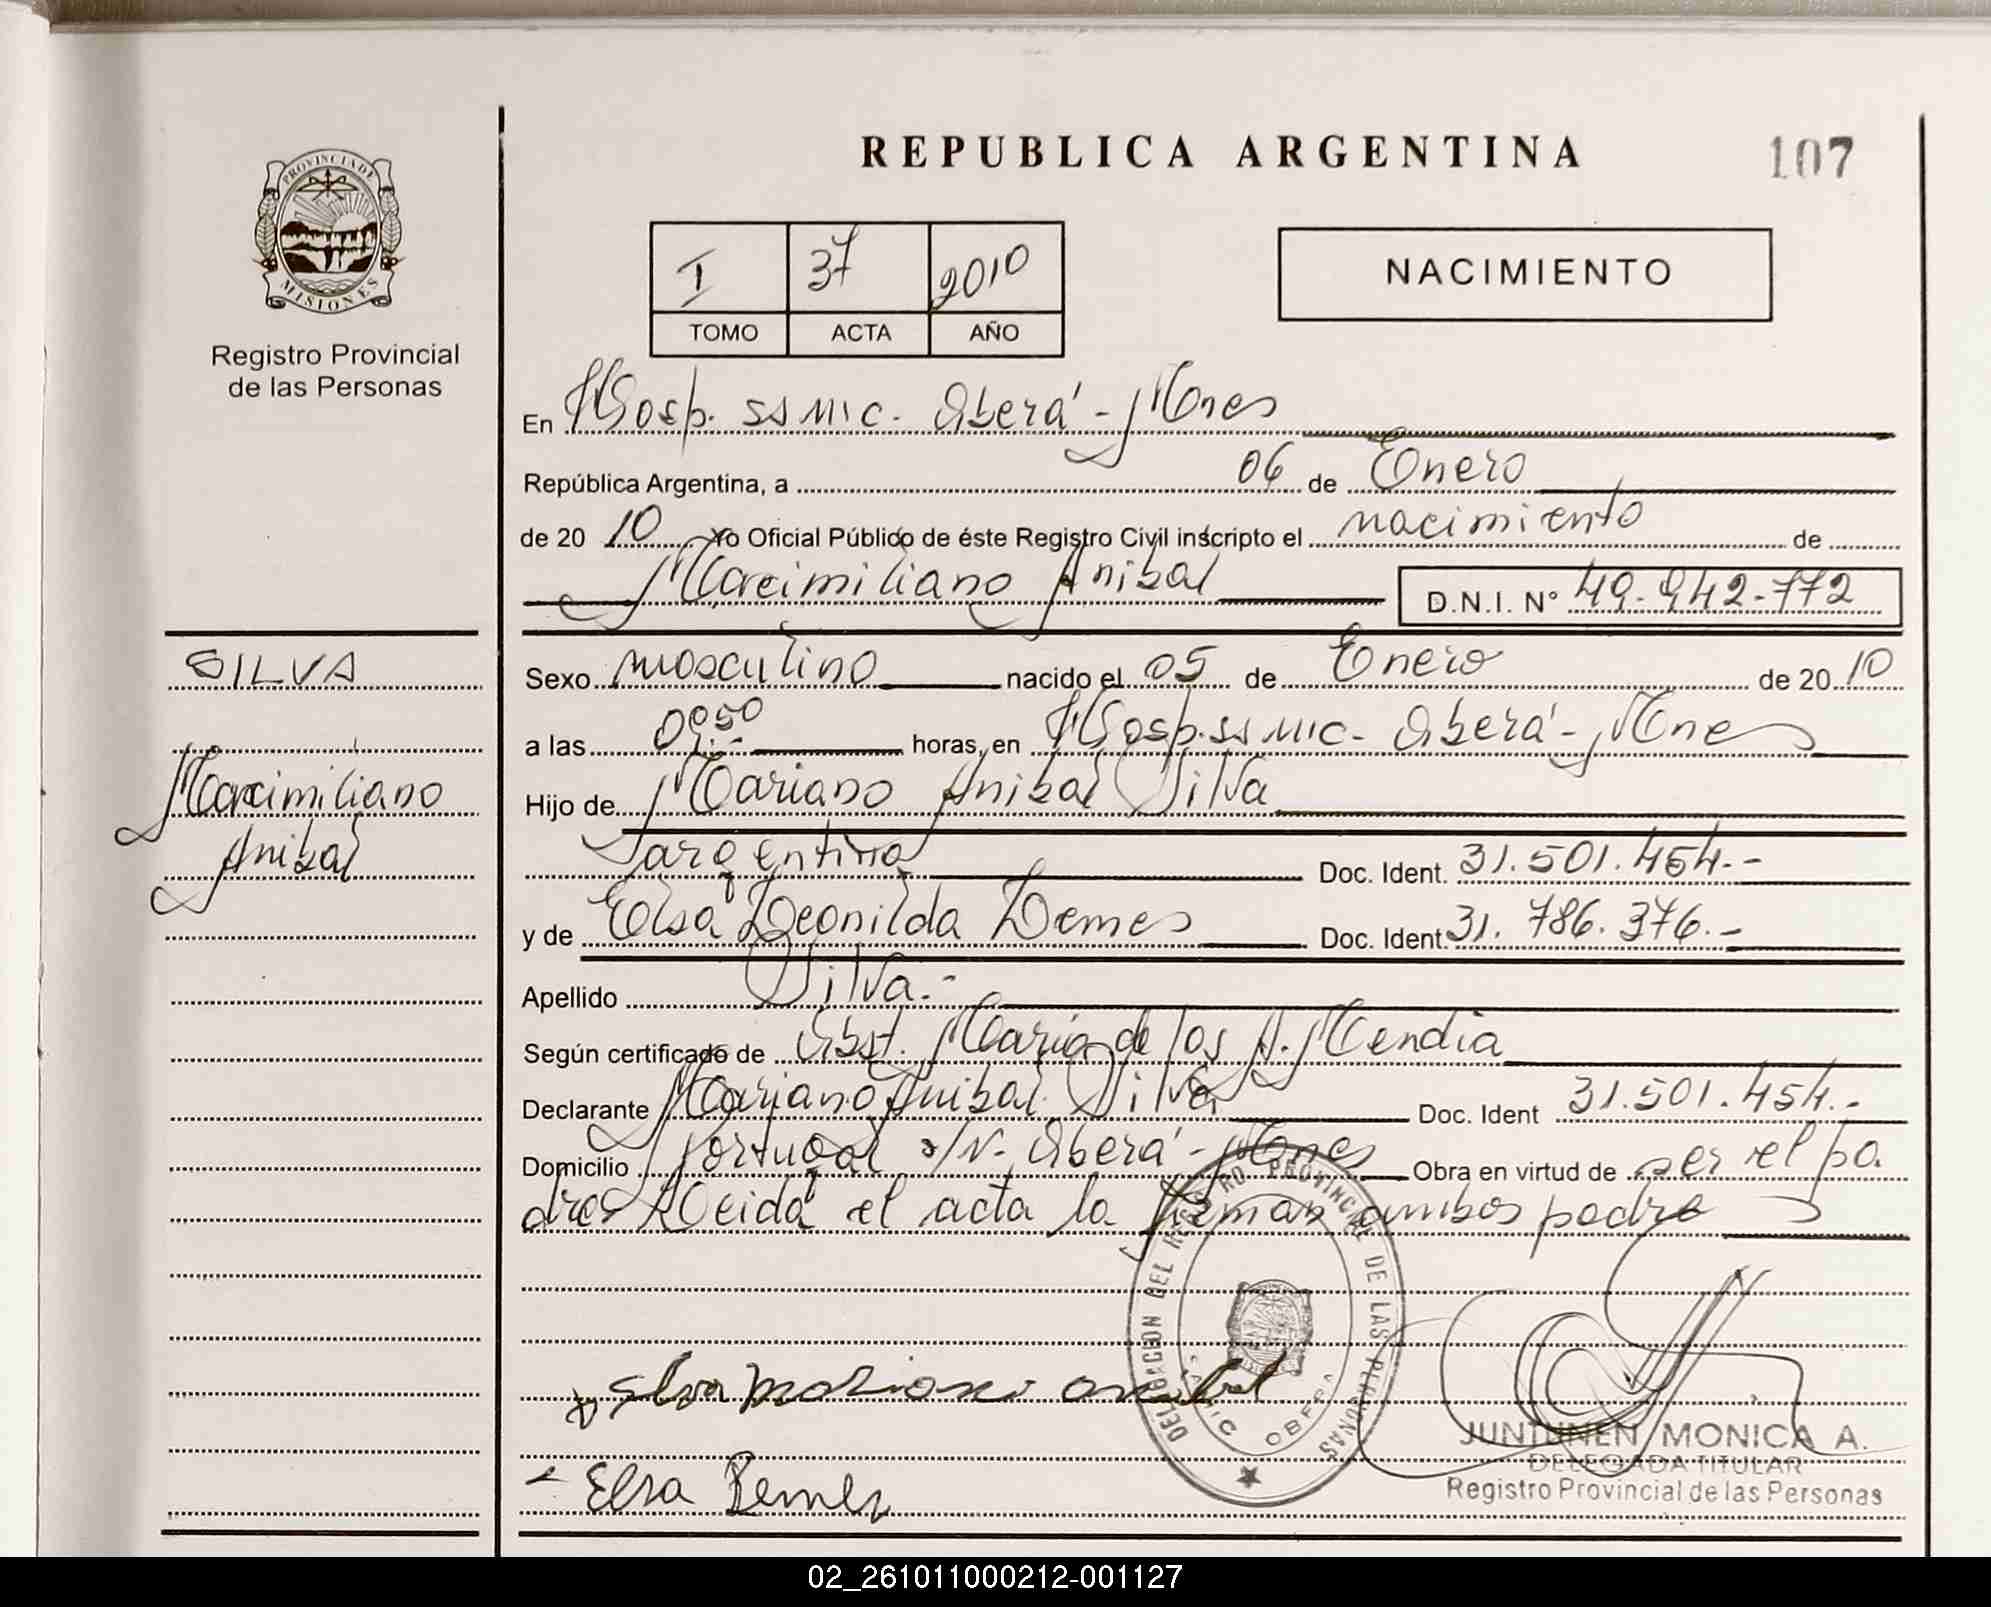 REPUBLICA ARGENTINA
107
PROVINCIA DE
MISIONES
Registro Provincial
de las Personas
I 37 2010
TOMO ACTA AÑO
NACIMIENTO
En Hosp. SSMIC. Oberá - Mnes
República Argentina, a 06 de Enero
de 20 10 Yo Oficial Público de éste Registro Civil inscripto el nacimiento de
Marcimiliano Anibal D.N.I. Nº 49.942.772
SILVA
Marcimiliano
Anibal
Sexo masculino nacido el 05 de Enero de 20 10
a las 09:50 horas, en Hosp. SSMIC - Oberá - Mnes
Hijo de Mariano Anibal Silva
argentina Doc. Ident. 31.501.454.-
y de Elsa Leonilda Doc. Ident. 31.786.376.-
Apellido Silva.-
Según certificado de Obst. Maria de los A. Mendia
Declarante Mariano Anibal Silva Doc. Ident 31.501.454.-
Domicilio Portugal S/N. Oberá - Mnes Obra en virtud de ser el pa
dre. Leida el acta la firman ambos padres
DELEGACION DEL REGISTRO PROVINCIAL DE LAS PERSONAS
OBERA
Silva Mariano Anibal
Elsa
JUNTUNEN MONICA A.
DELEGADA TITULAR
Registro Provincial de las Personas
02_261011000212-001127